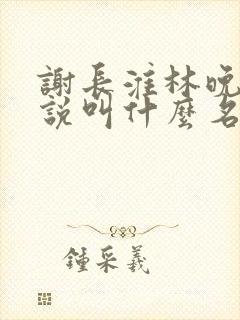 謝長淮林晚
說叫什麼名
鍾采羲